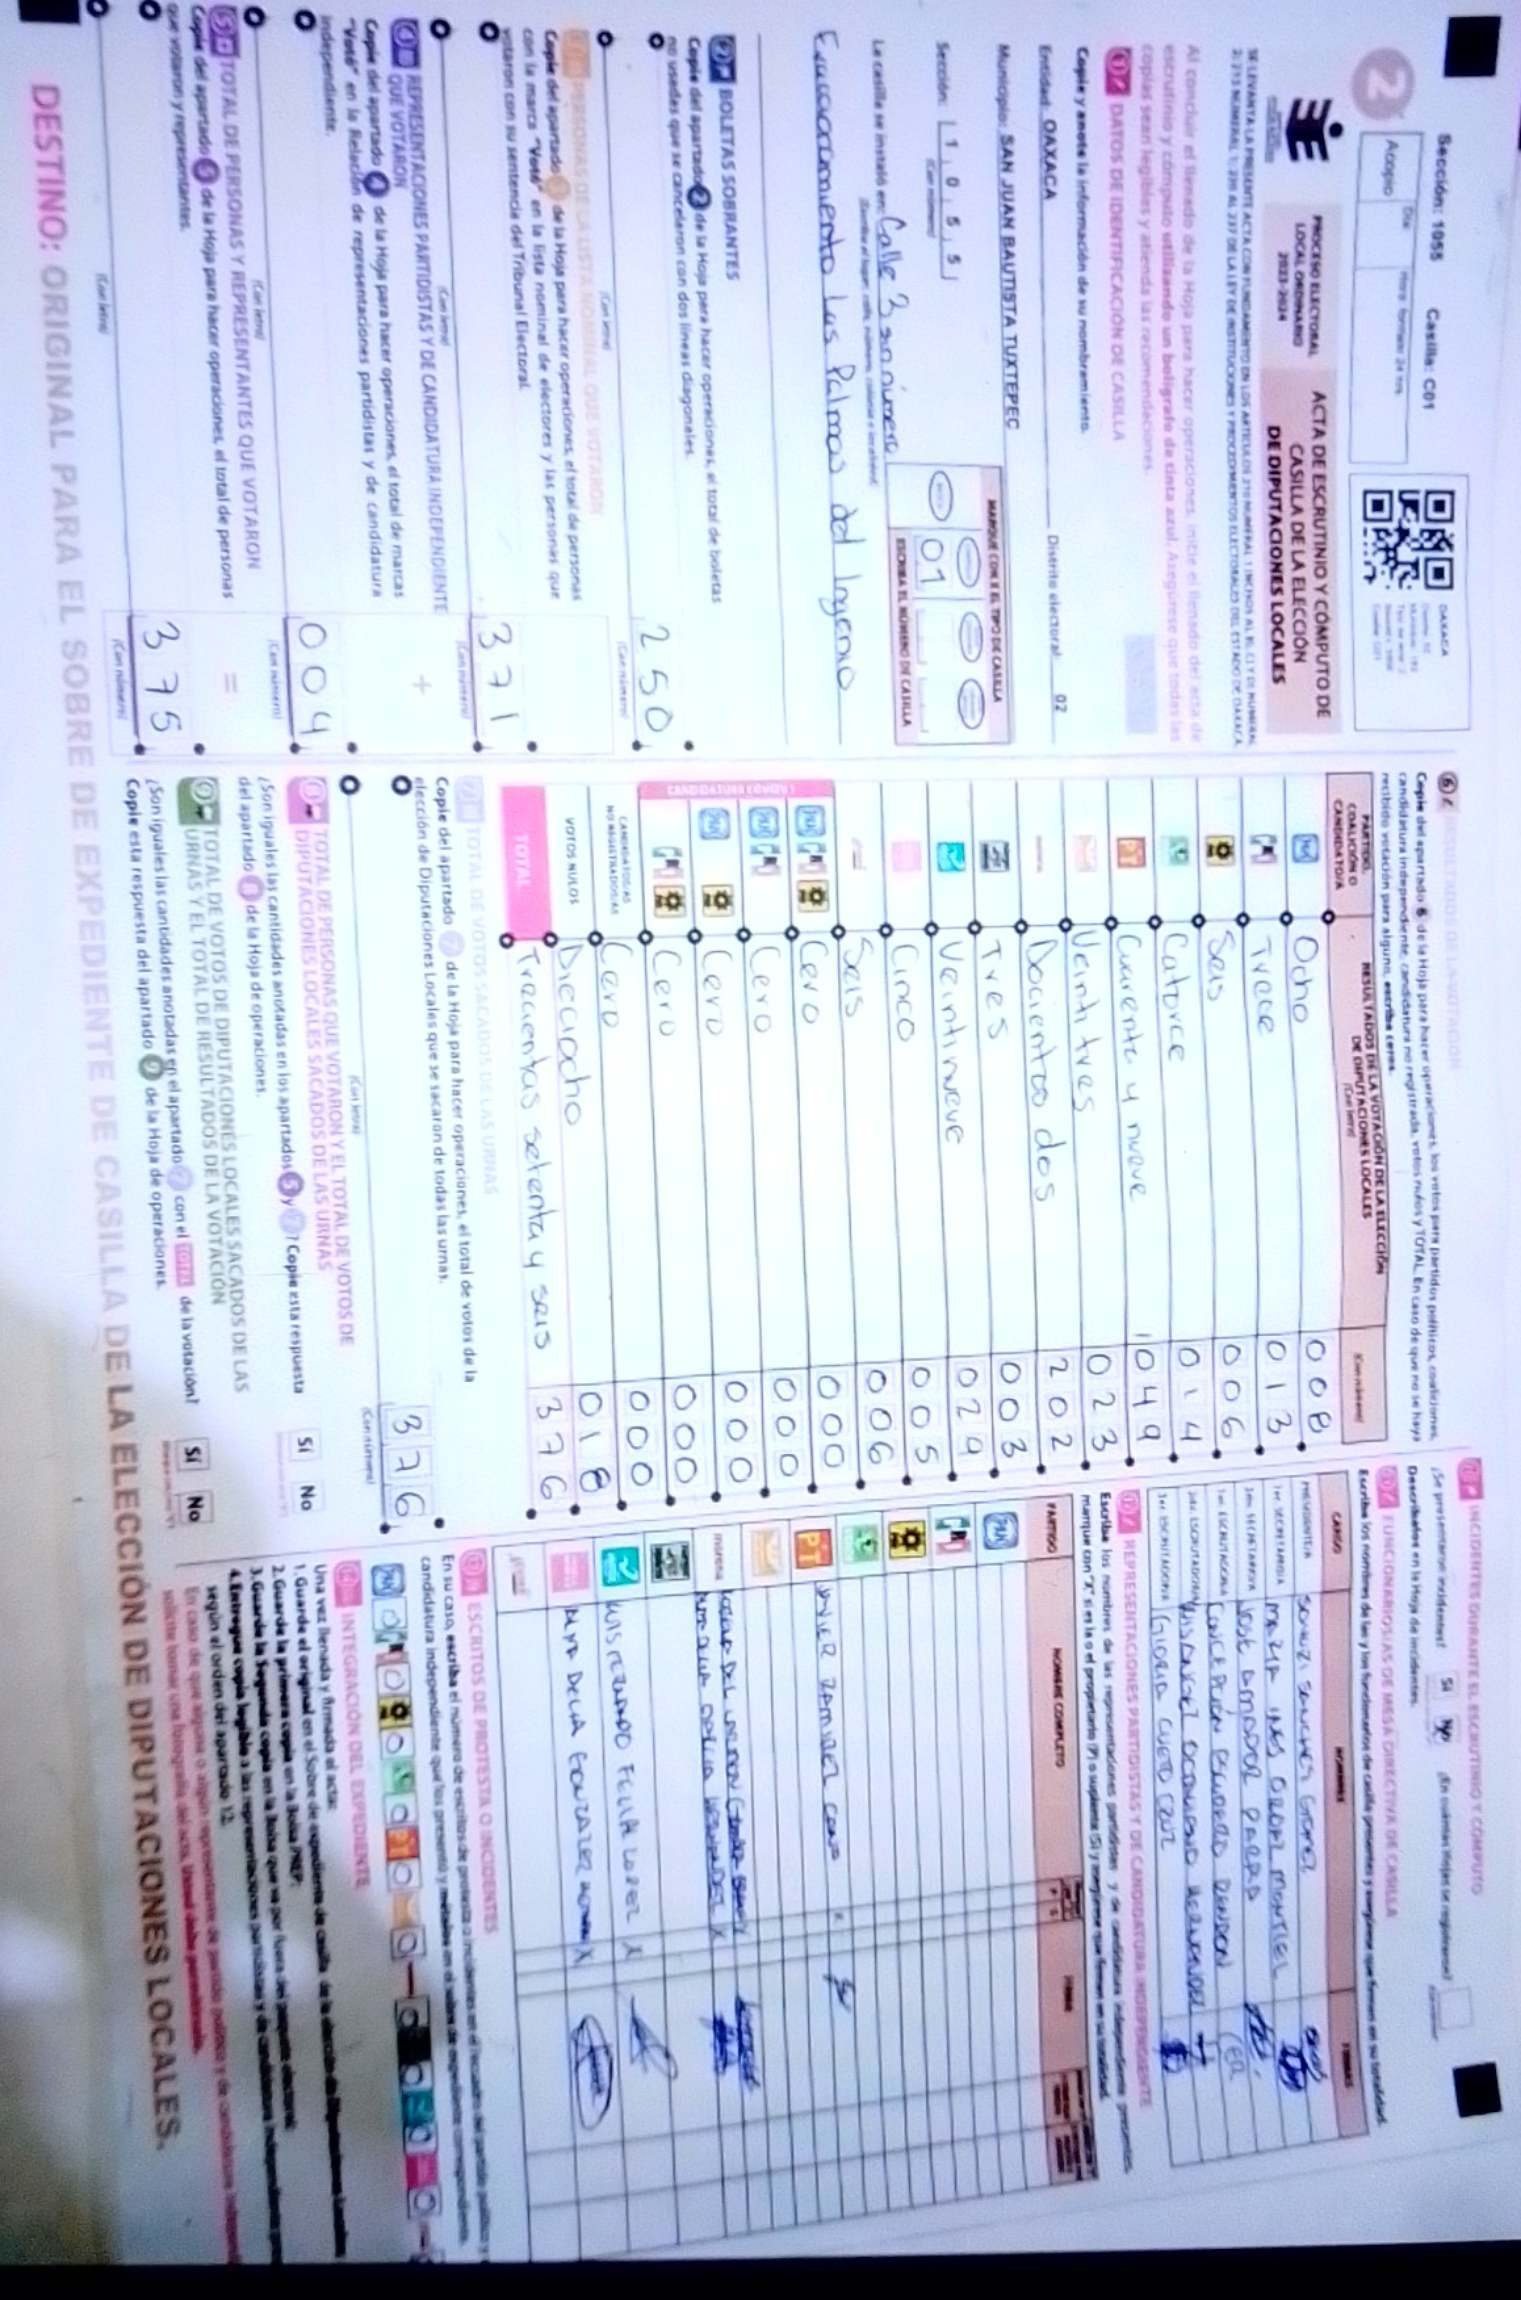 Sección: 1055 Casilla: C01
2
Acopio
Día
Hora formato 24 hrs
OAXACA
PROCESO ELECTORAL
LOCAL ORDINARIO
2023-2024
ACTA DE ESCRUTINIO Y CÓMPUTO DE
CASILLA DE LA ELECCIÓN
DE DIPUTACIONES LOCALES
Al concluir el llenado de la Hoja para hacer operaciones, inicie el llenado del acta de
escrutinio y cómputo utilizando un bolígrafo de tinta azul. Asegúrese que todas las
copias sean legibles y atienda las recomendaciones.
1 DATOS DE IDENTIFICACIÓN DE CASILLA
Copie y anote la información de su nombramiento.
Entidad: OAXACA Distrito electoral: 02
Municipio: SAN JUAN BAUTISTA TUXTEPEC
Sección: 1 0 5 5
(Con número)
MARQUE CON X EL TIPO DE CASILLA
01
ESCRIBA EL NÚMERO DE CASILLA
La casilla se instaló en: Calle 3 sn número
Fraccionamiento Las Palmas del Ingenio
2 BOLETAS SOBRANTES
Copie del apartado 2 de la Hoja para hacer operaciones, el total de boletas
no usadas que se cancelaron con dos líneas diagonales.
250
(Con letra) (Con número)
3 PERSONAS DE LA LISTA NOMINAL QUE VOTARON
Copie del apartado 3 de la Hoja para hacer operaciones, el total de personas
con la marca "Votó" en la lista nominal de electores y las personas que
votaron con su sentencia del Tribunal Electoral.
371
(Con letra) (Con número)
+
4 REPRESENTACIONES PARTIDISTAS Y DE CANDIDATURA INDEPENDIENTE
QUE VOTARON
Copie del apartado 4 de la Hoja para hacer operaciones, el total de marcas
"Votó" en la Relación de representaciones partidistas y de candidatura
independiente.
004
(Con letra) (Con número)
=
5 TOTAL DE PERSONAS Y REPRESENTANTES QUE VOTARON
Copie del apartado 5 de la Hoja para hacer operaciones, el total de personas
que votaron y representantes.
375
(Con letra) (Con número)
6 RESULTADOS DE LA VOTACIÓN
Copie del apartado 6 de la Hoja para hacer operaciones, los votos para partidos políticos, coaliciones,
candidatura independiente, candidatura no registrada, votos nulos y TOTAL. En caso de que no se haya
recibido votación para alguno, escriba ceros.
PARTIDO, COALICIÓN O CANDIDATO/A
RESULTADOS DE LA VOTACIÓN DE LA ELECCIÓN
DE DIPUTACIONES LOCALES
(Con letra) (Con número)
PAN Ocho 008
PRI Trece 013
PRD Seis 006
Catorce 014
PT Cuarenta y nueve 049
Veintitres 023
morena Docientos dos 202
Tres 003
Veintinueve 029
Cinco 005
Seis 006
PAN PRI PRD Cero 000
PAN PRI Cero 000
PAN PRD Cero 000
PRI PRD Cero 000
CANDIDATOS/AS NO REGISTRADOS/AS Cero 000
VOTOS NULOS Dieciocho 018
TOTAL Trecientas setenta y seis 376
7 TOTAL DE VOTOS SACADOS DE LAS URNAS
Copie del apartado 7 de la Hoja para hacer operaciones, el total de votos de la
elección de Diputaciones Locales que se sacaron de todas las urnas.
376
(Con letra) (Con número)
8 TOTAL DE PERSONAS QUE VOTARON Y EL TOTAL DE VOTOS DE
DIPUTACIONES LOCALES SACADOS DE LAS URNAS
¿Son iguales las cantidades anotadas en los apartados 5 y 7? Copie esta respuesta
del apartado 8 de la Hoja de operaciones.
Sí No
9 TOTAL DE VOTOS DE DIPUTACIONES LOCALES SACADOS DE LAS
URNAS Y EL TOTAL DE RESULTADOS DE LA VOTACIÓN
¿Son iguales las cantidades anotadas en el apartado 7 con el TOTAL de la votación?
Copie esta respuesta del apartado 9 de la Hoja de operaciones.
Sí No
INCIDENTES DURANTE EL ESCRUTINIO Y CÓMPUTO
¿Se presentaron incidentes? Sí No ¿En cuántas Hojas se registraron?
Descríbalos en la Hoja de incidentes.
FUNCIONARIOS/AS DE MESA DIRECTIVA DE CASILLA
Escriba los nombres de las y los funcionarios de casilla presentes y asegúrese que firmen en su totalidad.
CARGO NOMBRES FIRMAS
PRESIDENTE/A
1er. SECRETARIO/A MARIA INES OROPEL MONTIEL
2do. SECRETARIO/A JOSE AMADOR PARRA
1er. ESCRUTADOR/A CONCEPCION ESCUDERO RENDON
2do. ESCRUTADOR/A LUIS ANGEL OCAMPO HERNANDEZ
3er. ESCRUTADOR/A GLORIA CUETO CRUZ
REPRESENTACIONES PARTIDISTAS Y DE CANDIDATURA INDEPENDIENTE
Escriba los nombres de las representaciones partidistas y de candidatura independiente presentes,
marque con "X" si es la o el propietario (P) o suplente (S) y asegúrese que firmen en su totalidad.
PARTIDO NOMBRE COMPLETO
PAN
PRI
PRD
PT JAVIER RAMIREZ CANO X
morena
LUIS FERNANDO FELIPE LOPEZ X
ESCRITOS DE PROTESTA O INCIDENTES
En su caso, escriba el número de escritos de protesta o incidentes en el recuadro del partido político y
candidatura independiente que los presentó y métalos en el sobre de expediente correspondiente.
INTEGRACIÓN DEL EXPEDIENTE
Una vez llenada y firmada el acta:
1. Guarde el original en el Sobre de expediente de casilla de la elección de Diputaciones Locales.
2. Guarde la primera copia en la bolsa PREP.
3. Guarde la segunda copia en la bolsa que va por fuera del paquete electoral.
4. Entregue copia legible a las representaciones partidistas y de candidatura independiente
según el orden del apartado 12.
DESTINO: ORIGINAL PARA EL SOBRE DE EXPEDIENTE DE CASILLA DE LA ELECCIÓN DE DIPUTACIONES LOCALES.